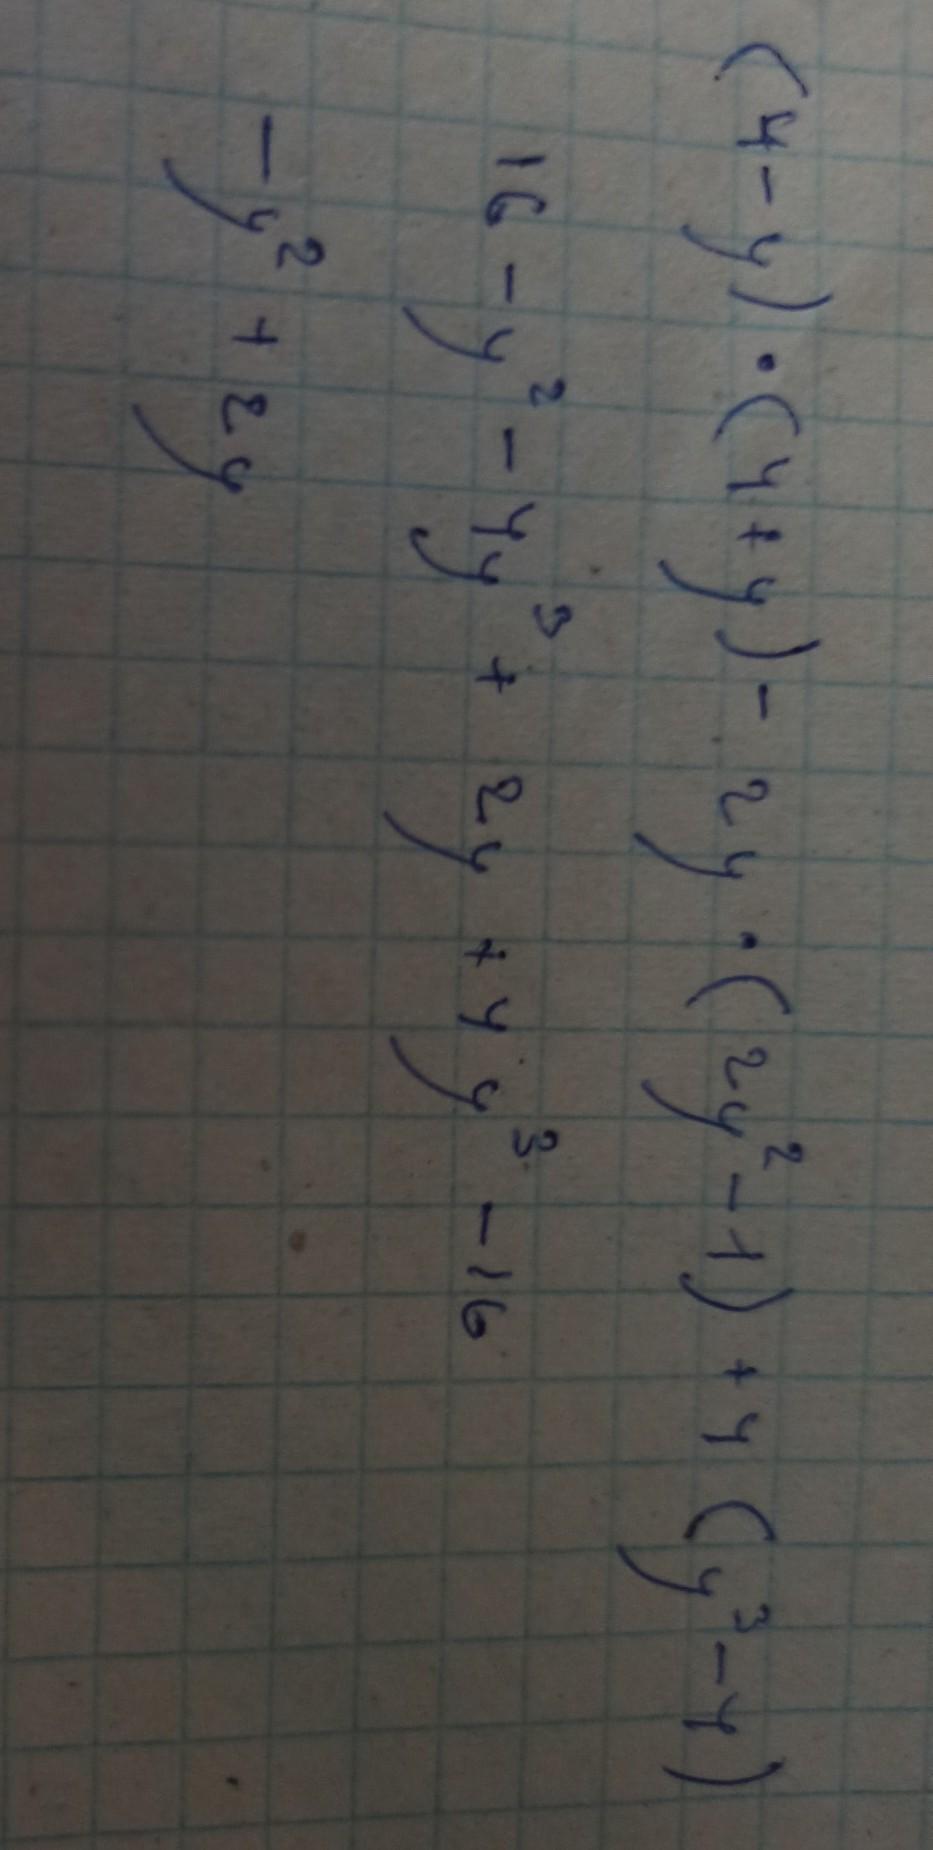 (4-y)·(4+y)-2y·(2y²-1)+4(y³-4)
16-y²-4y³+2y+4y³-16
-y²+2y